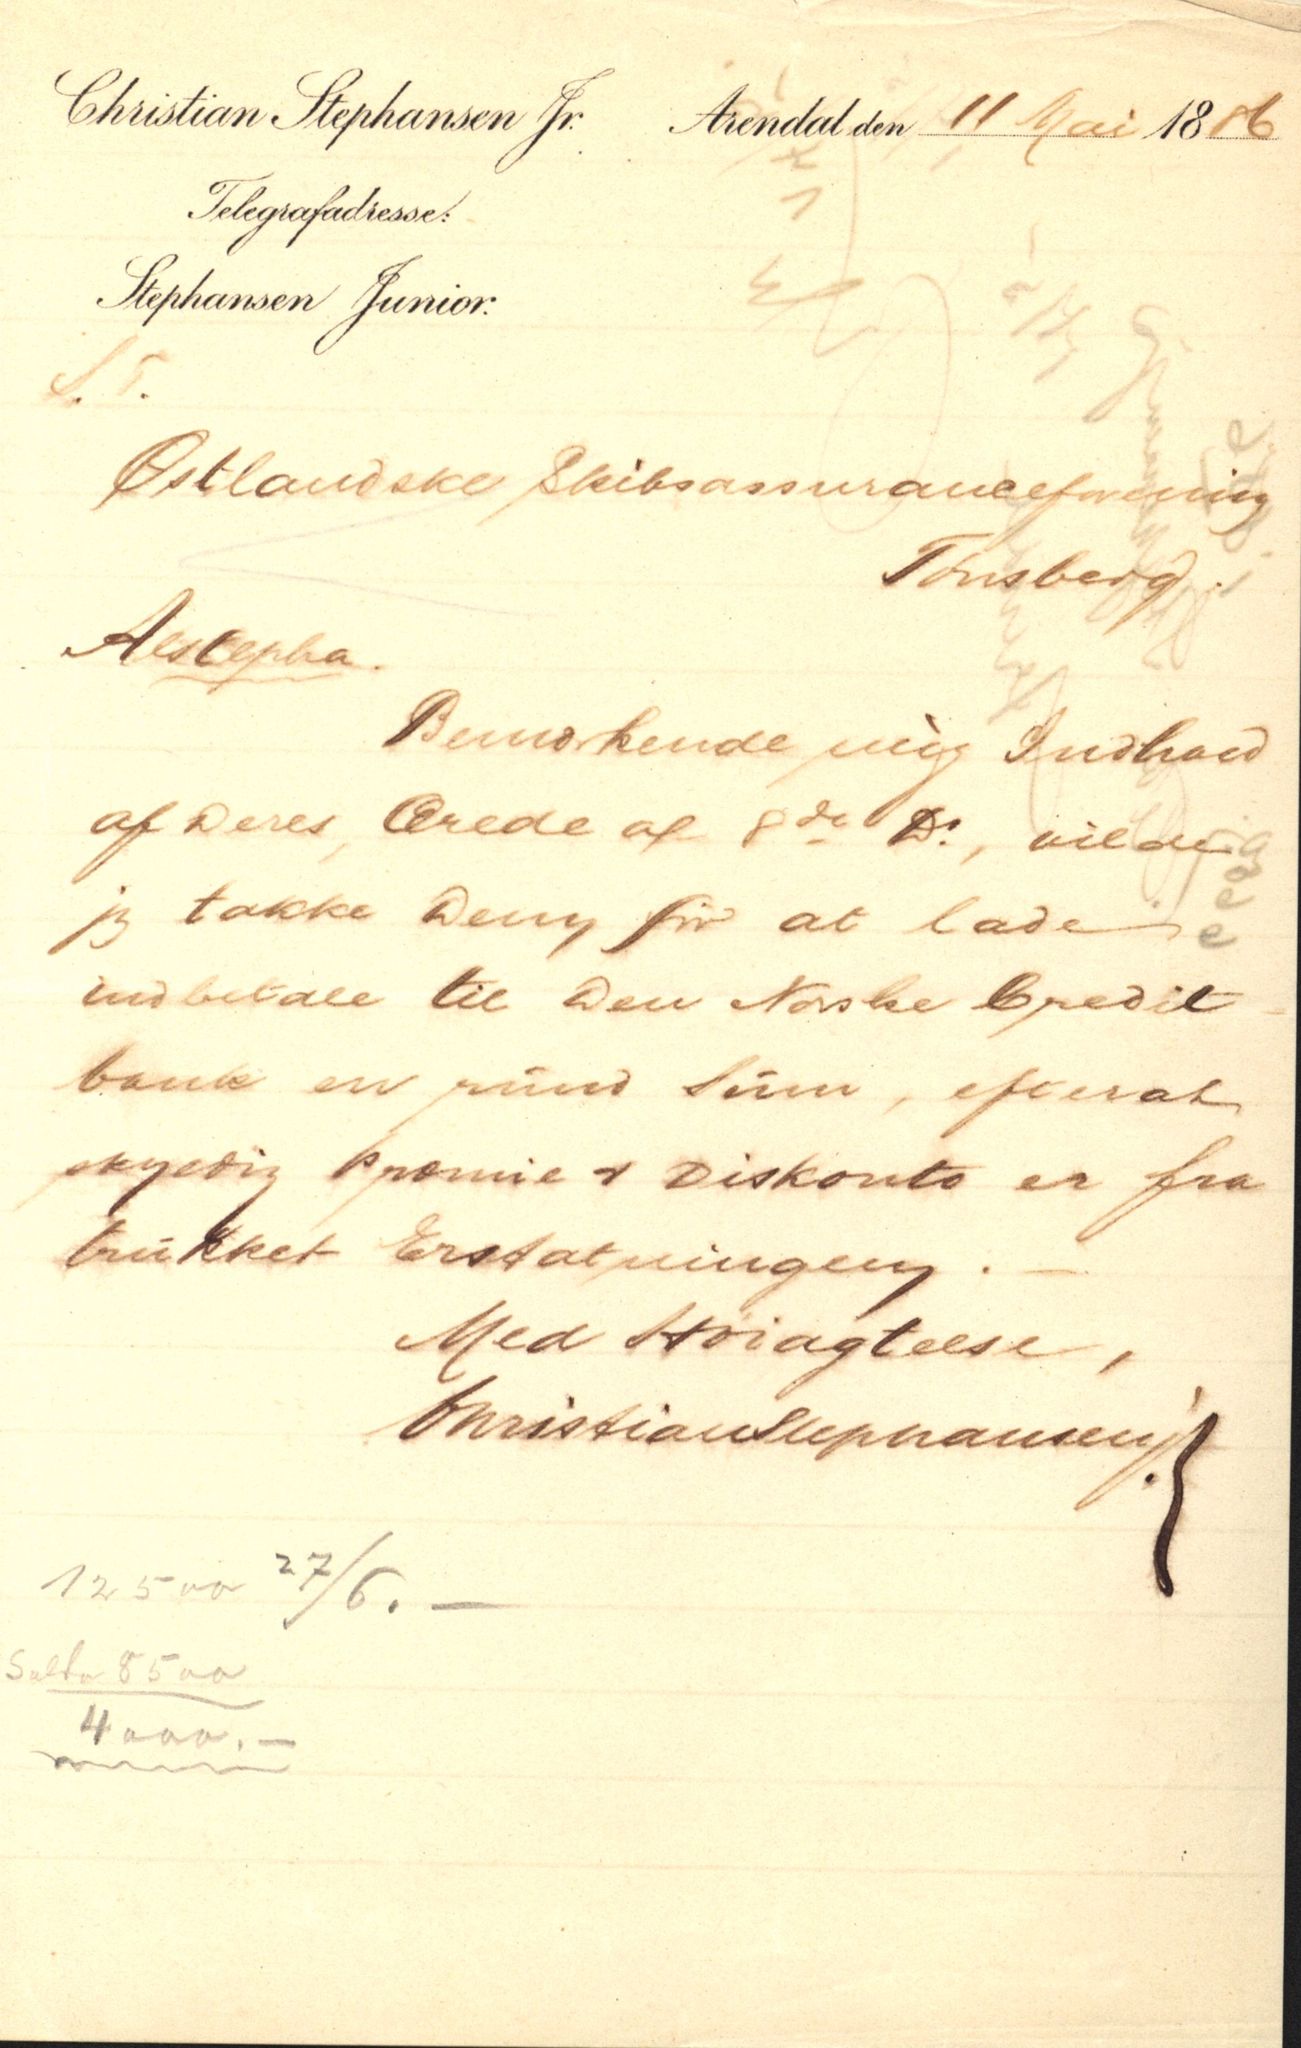 Christian Stephansen Jr. Arendal den 11 Mai 1886
Telegrafadresse:
Stephansen Junior.
S. T.
Østlandske Skibsassuranceforening
Tønsberg.
Alstepha.
Bemærkende mig Indhold
af Deres Ærede af 8de Ds, vilde
jg takke Dem for at lade
indbetale til Den Norske Credit-
bank en rund Sum, efterat
skyldig Præmie & Diskonto er fra
trukket Erstatningen. —
Med Høiagtelse,
Christian Stephansen Jr.
12500 27/6. —
Saldo 8500
4000.—